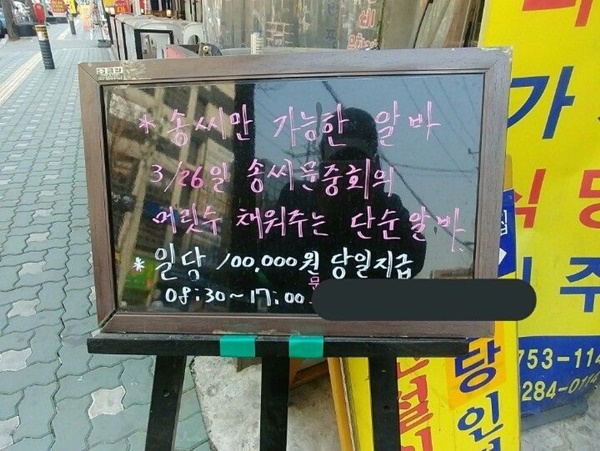 *송씨만 가능한 알바
3/26일 송씨문중회의
머릿수 채워주는 단순알바
*일당 100,000원 당일지급
08:30~17:00 문
가
식 당
주
당
인
753-114
284-0114